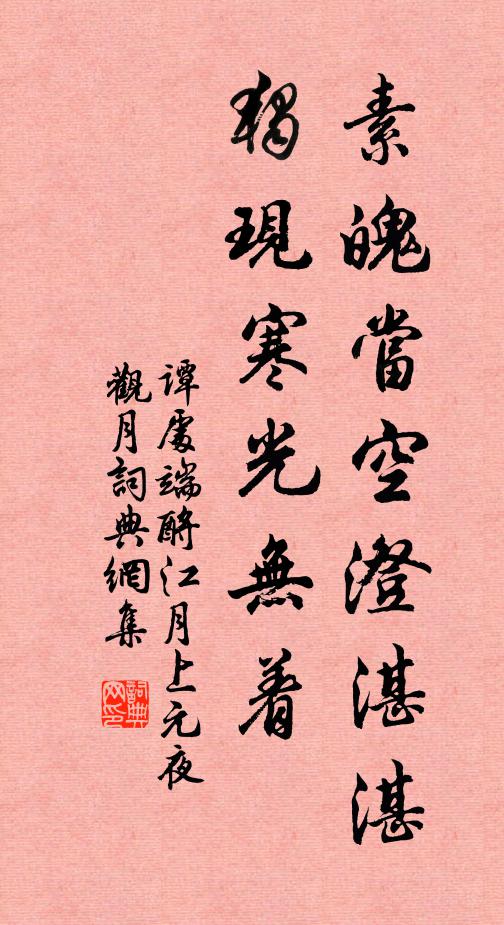 素魄當空澄湛湛
獨現寒光無着
譚處端酹江月上元夜
觀月詞典網集
詞典
网印